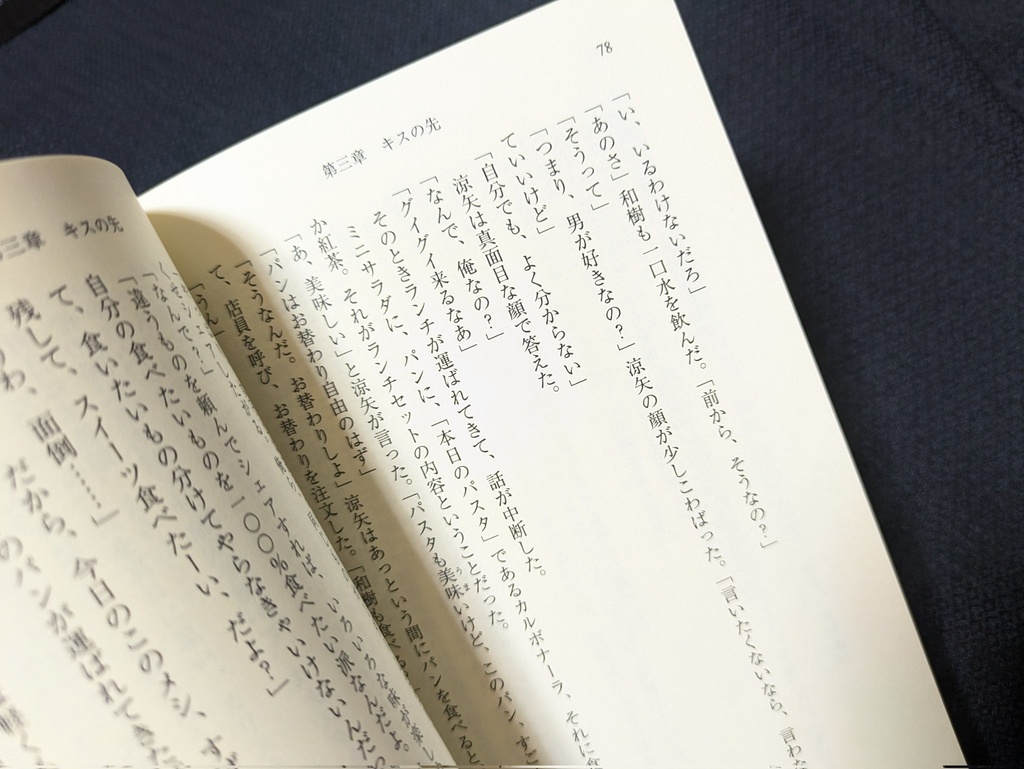 78
第三章　キスの先
「い、いるわけないだろ」
「あのさ」和樹も一口水を飲んだ。「前から、そうなの？」
「そうって」
「つまり、男が好きなの？」涼矢の顔が少しこわばった。「言いたくないなら、言わな
ていいけど」
「自分でも、よく分からない」
涼矢は真面目な顔で答えた。
「なんで、俺なの？」
「グイグイ来るなあ」
そのときランチが運ばれてきて、話が中断した。
ミニサラダに、パンに、「本日のパスタ」であるカルボナーラ、それに食
か紅茶。それがランチセットの内容ということだった。
「あ、美味しい」と涼矢が言った。「パスタも美味いけど、このパン、すご
「パンはお替わり自由のはず」涼矢はあっという間にパンを食べると
「そうなんだ。お替わりしよ」
て、店員を呼び、お替わりを注文した。「和樹も食べる
「うん」
第三章　キスの先
「なんで？」
「違うものを頼んでシェアすれば、いろいろな味が楽し
自分の食べたいものを一〇〇％食べたい派なんだよ。
て、自分の食いたいもの分けてやらなきゃいけないんだ
残して、スイーツ食べたーい、だよ？」
わ、面倒……」
だから、今日のこのメシ、すげ
のパンが運ばれてきた